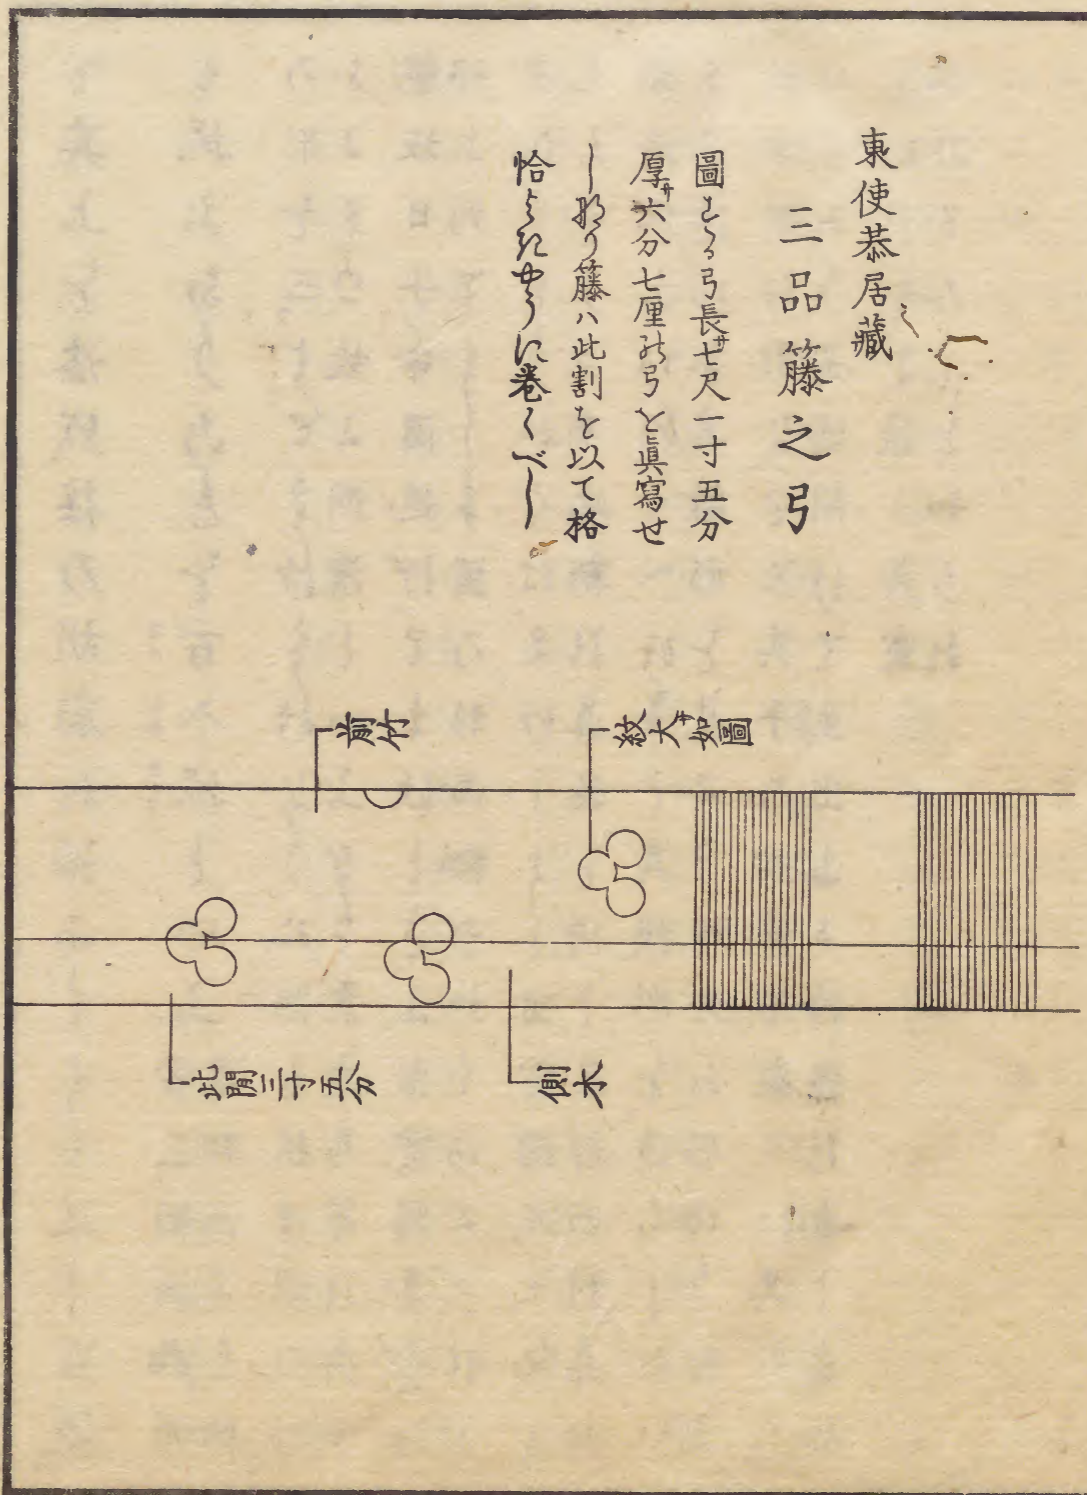 東使恭居藏
三品籐之弓
圖する弓長サ七尺一寸五分
厚サ六分七厘の弓を眞寫せ
し物り籐ハ此割を以て格
恰よきやうに巻くべし
紋大サ如圖
前竹
側木
此間三寸五分